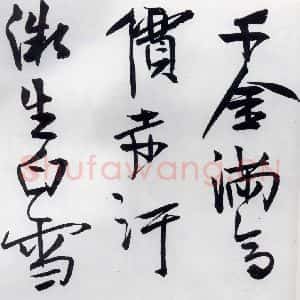 千金滿高
價赤汗
微生白雪
Shufawang.Cn